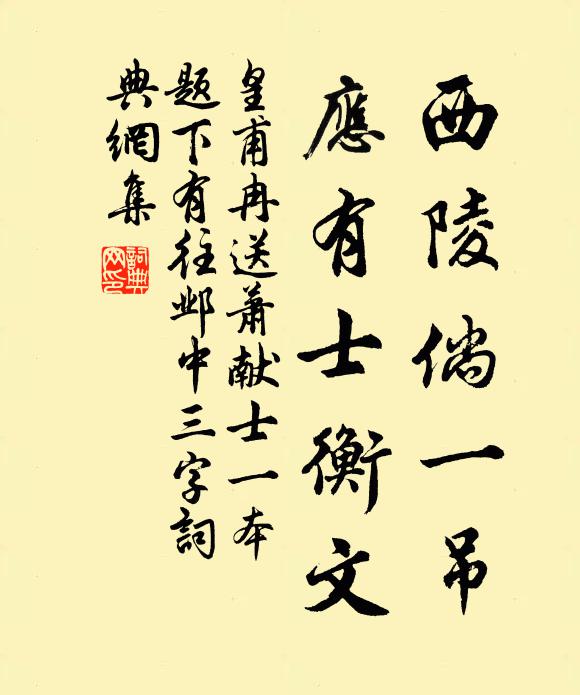 西陵倘一吊
應有士衡文
皇甫冉送萧献士一本
题下有往邺中三字詞
典網集
詞典网印